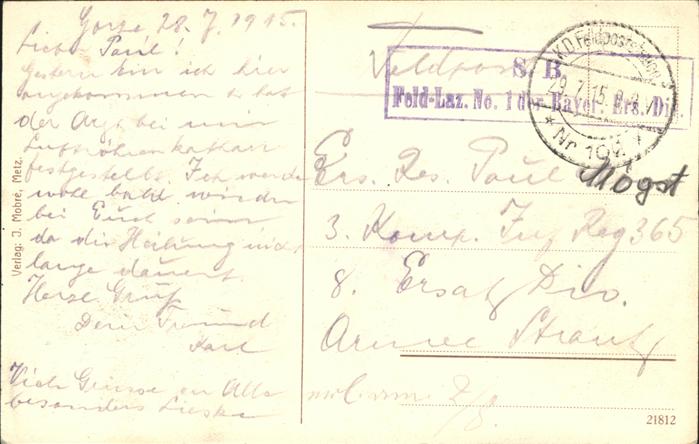 Gorze 28.7.1915.
Lieber Paul!
Gestern bin ich hier
angekommen u. hat
der Arzt bei mir
Luftröhrenkatarr
festgestellt. Ich werde
wohl bald wieder
bei Euch sein
da die Heilung nicht
lange dauert.
Herzl. Gruß
Dein Freund
Karl
Viele Grüsse an Alle
besonders
Verlag: J. Mobré, Metz.
Feldpost
S. B.
Feld-Laz. No. 1 der Bayer. Ers. Div.
K.D. Feldpoststation
29.7.15. 8-9 V
* Nr. 19
Ers. Res. Paul Mögst
3. Komp. Inf Reg 365
8. Ersatz Div.
Armee Strantz
21812